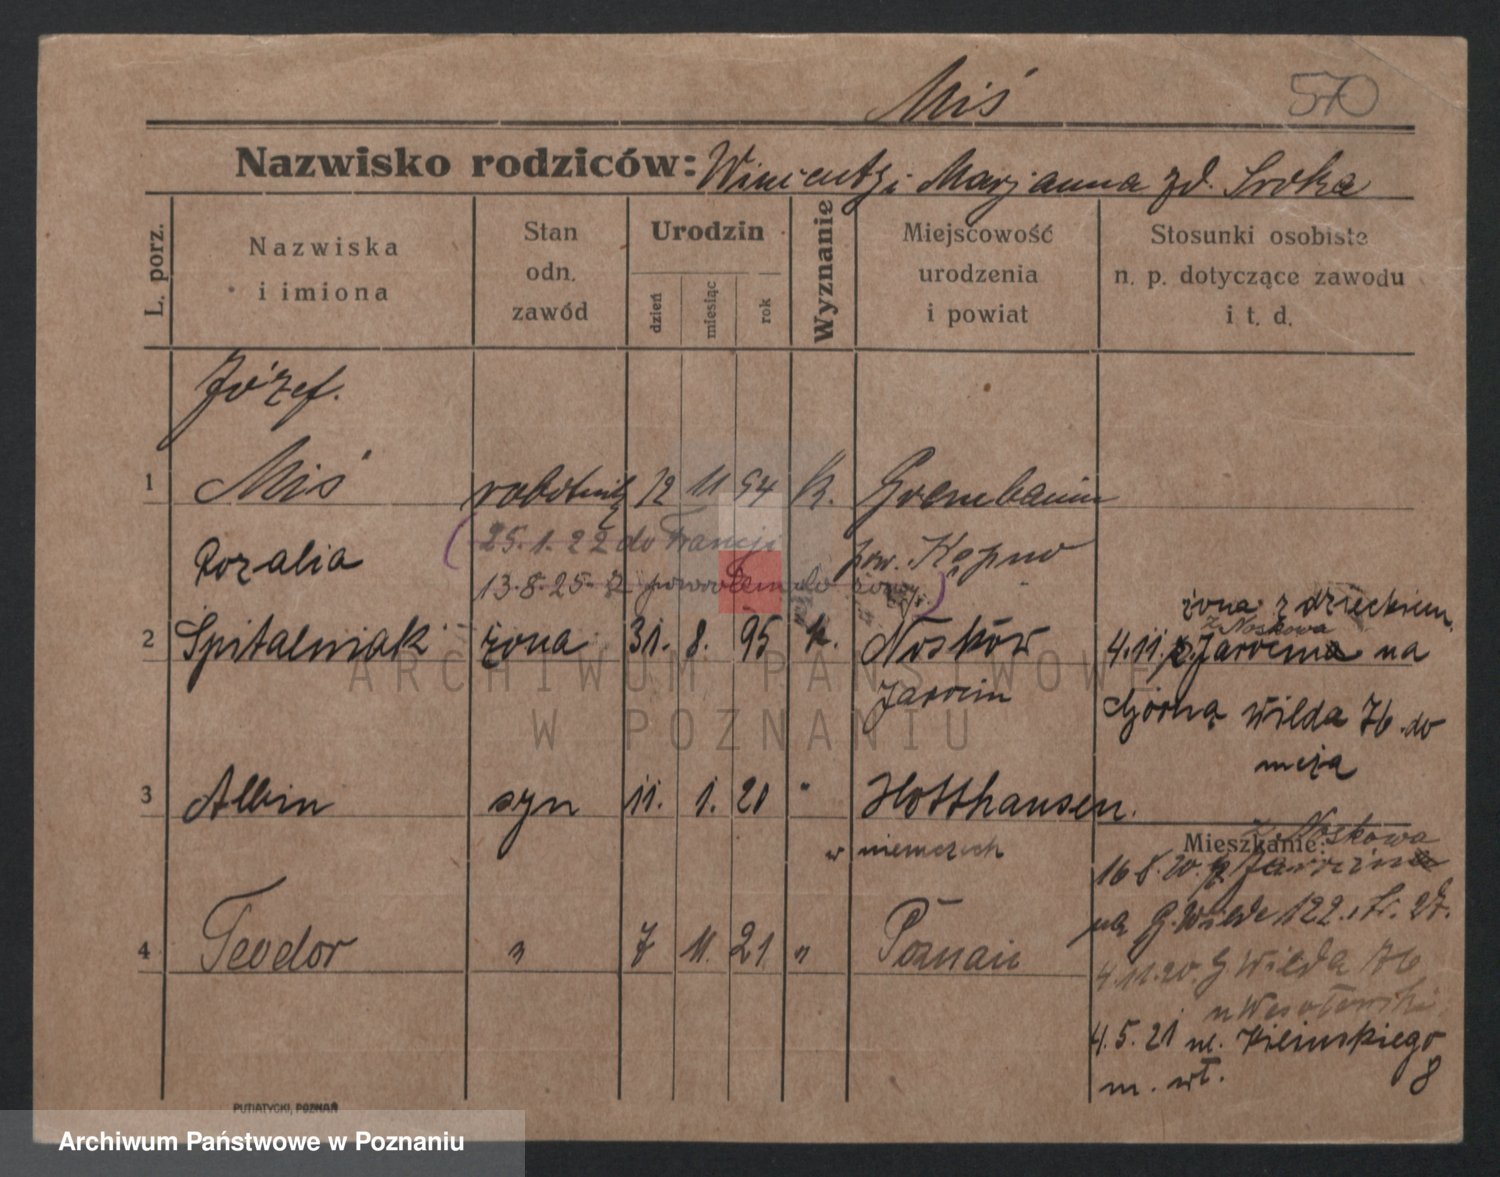 Miś 570
Nazwisko rodziców: Wincenty i Marjanna zd. Sroka
L. porz.
Nazwiska i imiona
Stan odn. zawód
Urodzin
dzień miesiąc rok
Wyznanie
Miejscowość urodzenia i powiat
Stosunki osobiste n. p. dotyczące zawodu i t. d.
Józef.
1 Miś robotnik 12 11 94 k. Grembanin
25.1.22 do Francji pow. Kępno
13.8.25. z powrotem do żony
Rozalia
2 Spitalniak żona 31. 8. 95 k. Nosków
Jarocin
żona z dzieckiem
z Noskowa
4.11. z Jarocina na
Górną Wilda 76 do
męża
3 Albin syn 11. 1. 20 " Hotthausen.
w niemczech
4 Teodor " 7 11. 21 " Poznań
Mieszkanie:
z Noskowa
16 8. 20. z Jarocina
na G. Wilde 122. 
4.11.20. G Wilda 76
4.5.21 ul. Kilinskiego
8
m. wł.
PUTIATYCKI, POZNAŃ
ARCHIWUM PAŃSTWOWE
W POZNANIU
Archiwum Państwowe w Poznaniu